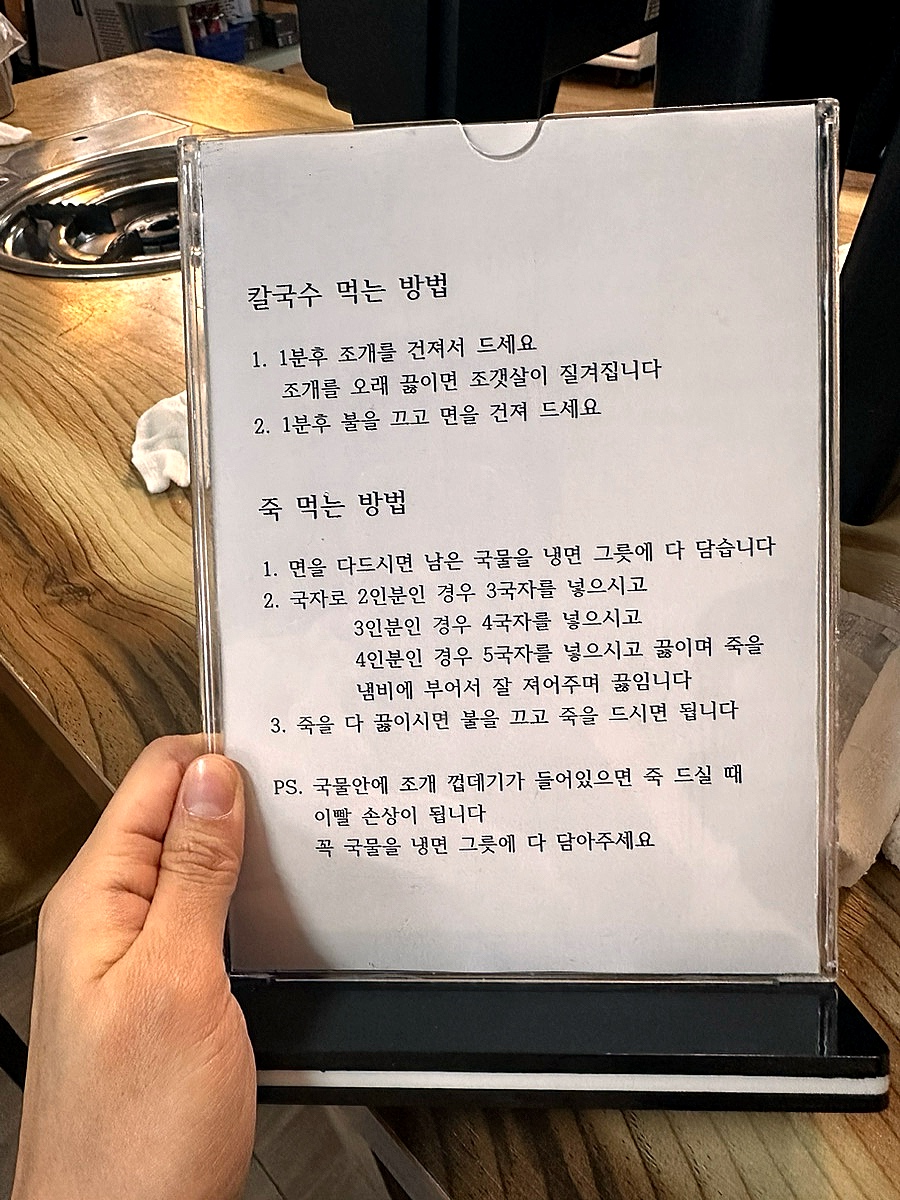 칼국수 먹는 방법
1. 1분후 조개를 건져서 드세요
조개를 오래 끓이면 조갯살이 질겨집니다
2. 1분후 불을 끄고 면을 건져 드세요
죽 먹는 방법
1. 면을 다드시면 남은 국물을 냉면 그릇에 다 담습니다
2. 국자로 2인분인 경우 3국자를 넣으시고
3인분인 경우 4국자를 넣으시고
4인분인 경우 5국자를 넣으시고 끓이며 죽을
냄비에 부어서 잘 져어주며 끓임니다
3. 죽을 다 끓이시면 불을 끄고 죽을 드시면 됩니다
PS. 국물안에 조개 껍데기가 들어있으면 죽 드실 때
이빨 손상이 됩니다
꼭 국물을 냉면 그릇에 다 담아주세요